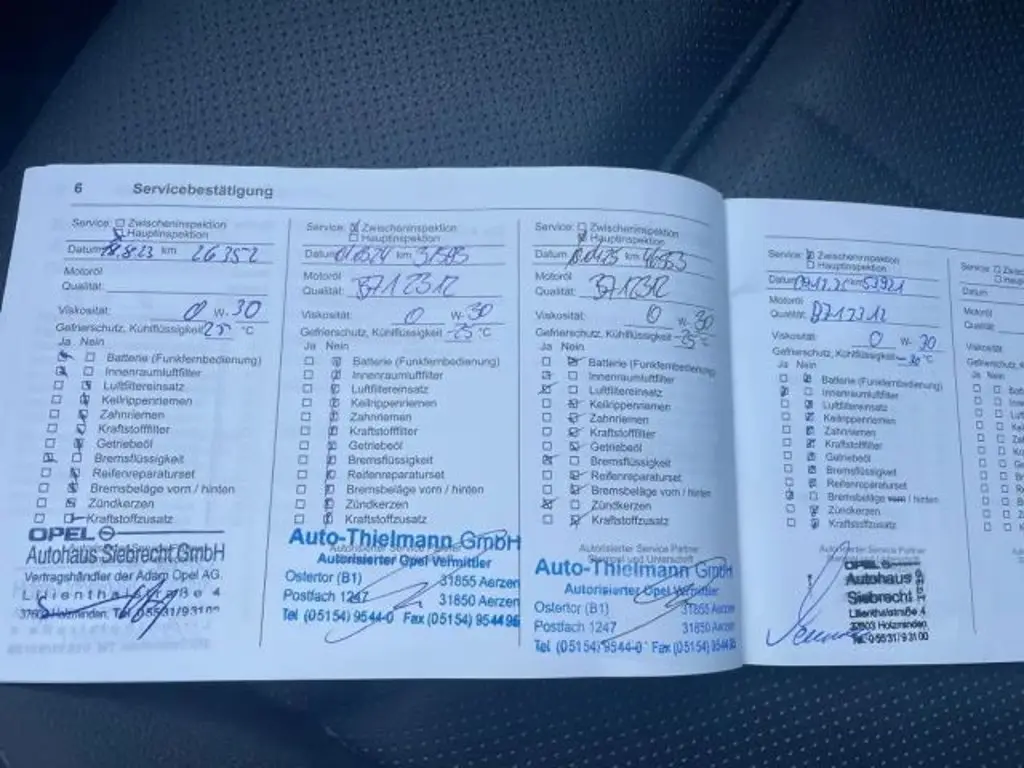 6 Servicebestätigung
Service: Zwischeninspektion
Hauptinspektion
Datum 18.8.23 km 26352
Motoröl
Qualität:
Viskosität: 0 W- 30
Gefrierschutz, Kühlflüssigkeit 25 °C
Ja Nein
Batterie (Funkfernbedienung)
Innenraumluftfilter
Luftfiltereinsatz
Keilrippenriemen
Zahnriemen
Kraftstofffilter
Getriebeöl
Bremsflüssigkeit
Reifenreparaturset
Bremsbeläge vorn / hinten
Zündkerzen
Kraftstoffzusatz
OPEL
Autohaus Siebrecht GmbH
Vertragshändler der Adam Opel AG
Lilienthalstraße 4
37603 Holzminden, Tel.
Service: Zwischeninspektion
Hauptinspektion
Datum km
Motoröl
Qualität: B712312
Viskosität: 0 W- 30
Gefrierschutz, Kühlflüssigkeit -25 °C
Ja Nein
Batterie (Funkfernbedienung)
Innenraumluftfilter
Luftfiltereinsatz
Keilrippenriemen
Zahnriemen
Kraftstofffilter
Getriebeöl
Bremsflüssigkeit
Reifenreparaturset
Bremsbeläge vorn / hinten
Zündkerzen
Kraftstoffzusatz
Auto-Thielmann GmbH
Autorisierter Service Partner
Autorisierter Opel Vermittler
Ostertor (B1) 31855 Aerzen
Postfach 1247 31850 Aerzen
Tel (05154) 9544-0 Fax (05154) 954496
Service: Zwischeninspektion
Hauptinspektion
Datum km
Motoröl
Qualität: B712312
Viskosität: 0 W- 30
Gefrierschutz, Kühlflüssigkeit °C
Ja Nein
Batterie (Funkfernbedienung)
Innenraumluftfilter
Luftfiltereinsatz
Keilrippenriemen
Zahnriemen
Kraftstofffilter
Getriebeöl
Bremsflüssigkeit
Reifenreparaturset
Bremsbeläge vorn / hinten
Zündkerzen
Kraftstoffzusatz
Autorisierter Service Partner
Stempel und Unterschrift
Auto-Thielmann GmbH
Autorisierter Opel Vermittler
Ostertor (B1) 31855 Aerzen
Postfach 1247 31850 Aerzen
Tel (05154) 9544-0 Fax (05154) 954496
Service: Zwischeninspektion
Hauptinspektion
Datum km 53921
Motoröl
Qualität: B712312
Viskosität: 0 W- 30
Gefrierschutz, Kühlflüssigkeit -30 °C
Ja Nein
Batterie (Funkfernbedienung)
Innenraumluftfilter
Luftfiltereinsatz
Keilrippenriemen
Zahnriemen
Kraftstofffilter
Getriebeöl
Bremsflüssigkeit
Reifenreparaturset
Bremsbeläge vorn / hinten
Zündkerzen
Kraftstoffzusatz
Autorisierter Service Partner
OPEL
Autohaus
Siebrecht
Lilienthalstraße 4
37603 Holzminden
Tel. 05531/93100
Service:
Datum
Motoröl
Qualität:
Viskosität:
Ja Nein